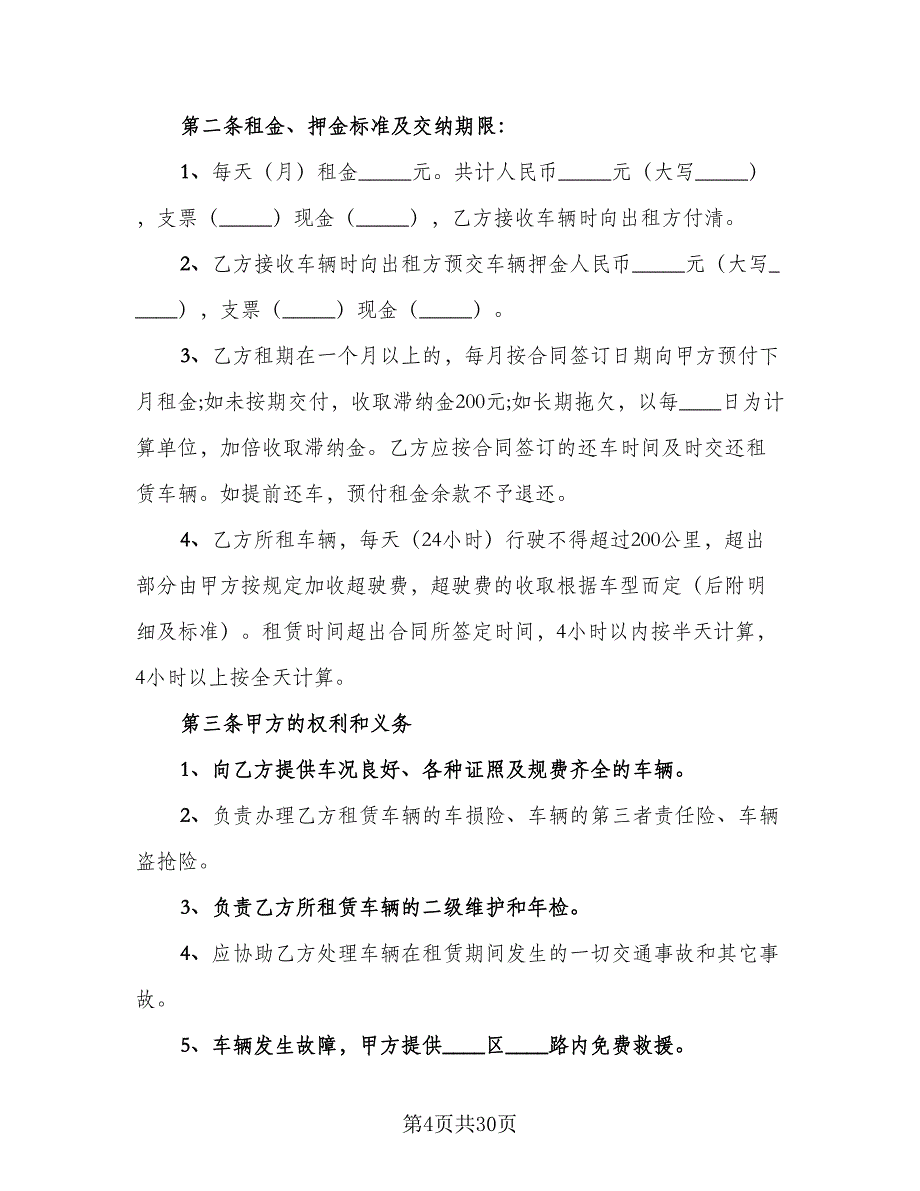 第二条租金、押金标准及交纳期限：
1、每天（月）租金_____元。共计人民币_____元（大写_____）
，支票（_____）现金（_____），乙方接收车辆时向出租方付清。
2、乙方接收车辆时向出租方预交车辆押金人民币_____元（大写_
____），支票（_____）现金（_____）。
3、乙方租期在一个月以上的，每月按合同签订日期向甲方预付下
月租金;如未按期交付，收取滞纳金200元;如长期拖欠，以每____日为计
算单位，加倍收取滞纳金。乙方应按合同签订的还车时间及时交还租
赁车辆。如提前还车，预付租金余款不予退还。
4、乙方所租车辆，每天（24小时）行驶不得超过200公里，超出
部分由甲方按规定加收超驶费，超驶费的收取根据车型而定（后附明
细及标准）。租赁时间超出合同所签定时间，4小时以内按半天计算，
4小时以上按全天计算。
第三条甲方的权利和义务
1、向乙方提供车况良好、各种证照及规费齐全的车辆。
2、负责办理乙方租赁车辆的车损险、车辆的第三者责任险、车辆
盗抢险。
3、负责乙方所租赁车辆的二级维护和年检。
4、应协助乙方处理车辆在租赁期间发生的一切交通事故和其它事
故。
5、车辆发生故障，甲方提供____区____路内免费救援。
第4页共30页